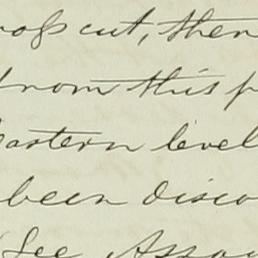 ross cut, then
from this p
eastern level
been disco
(See Assay